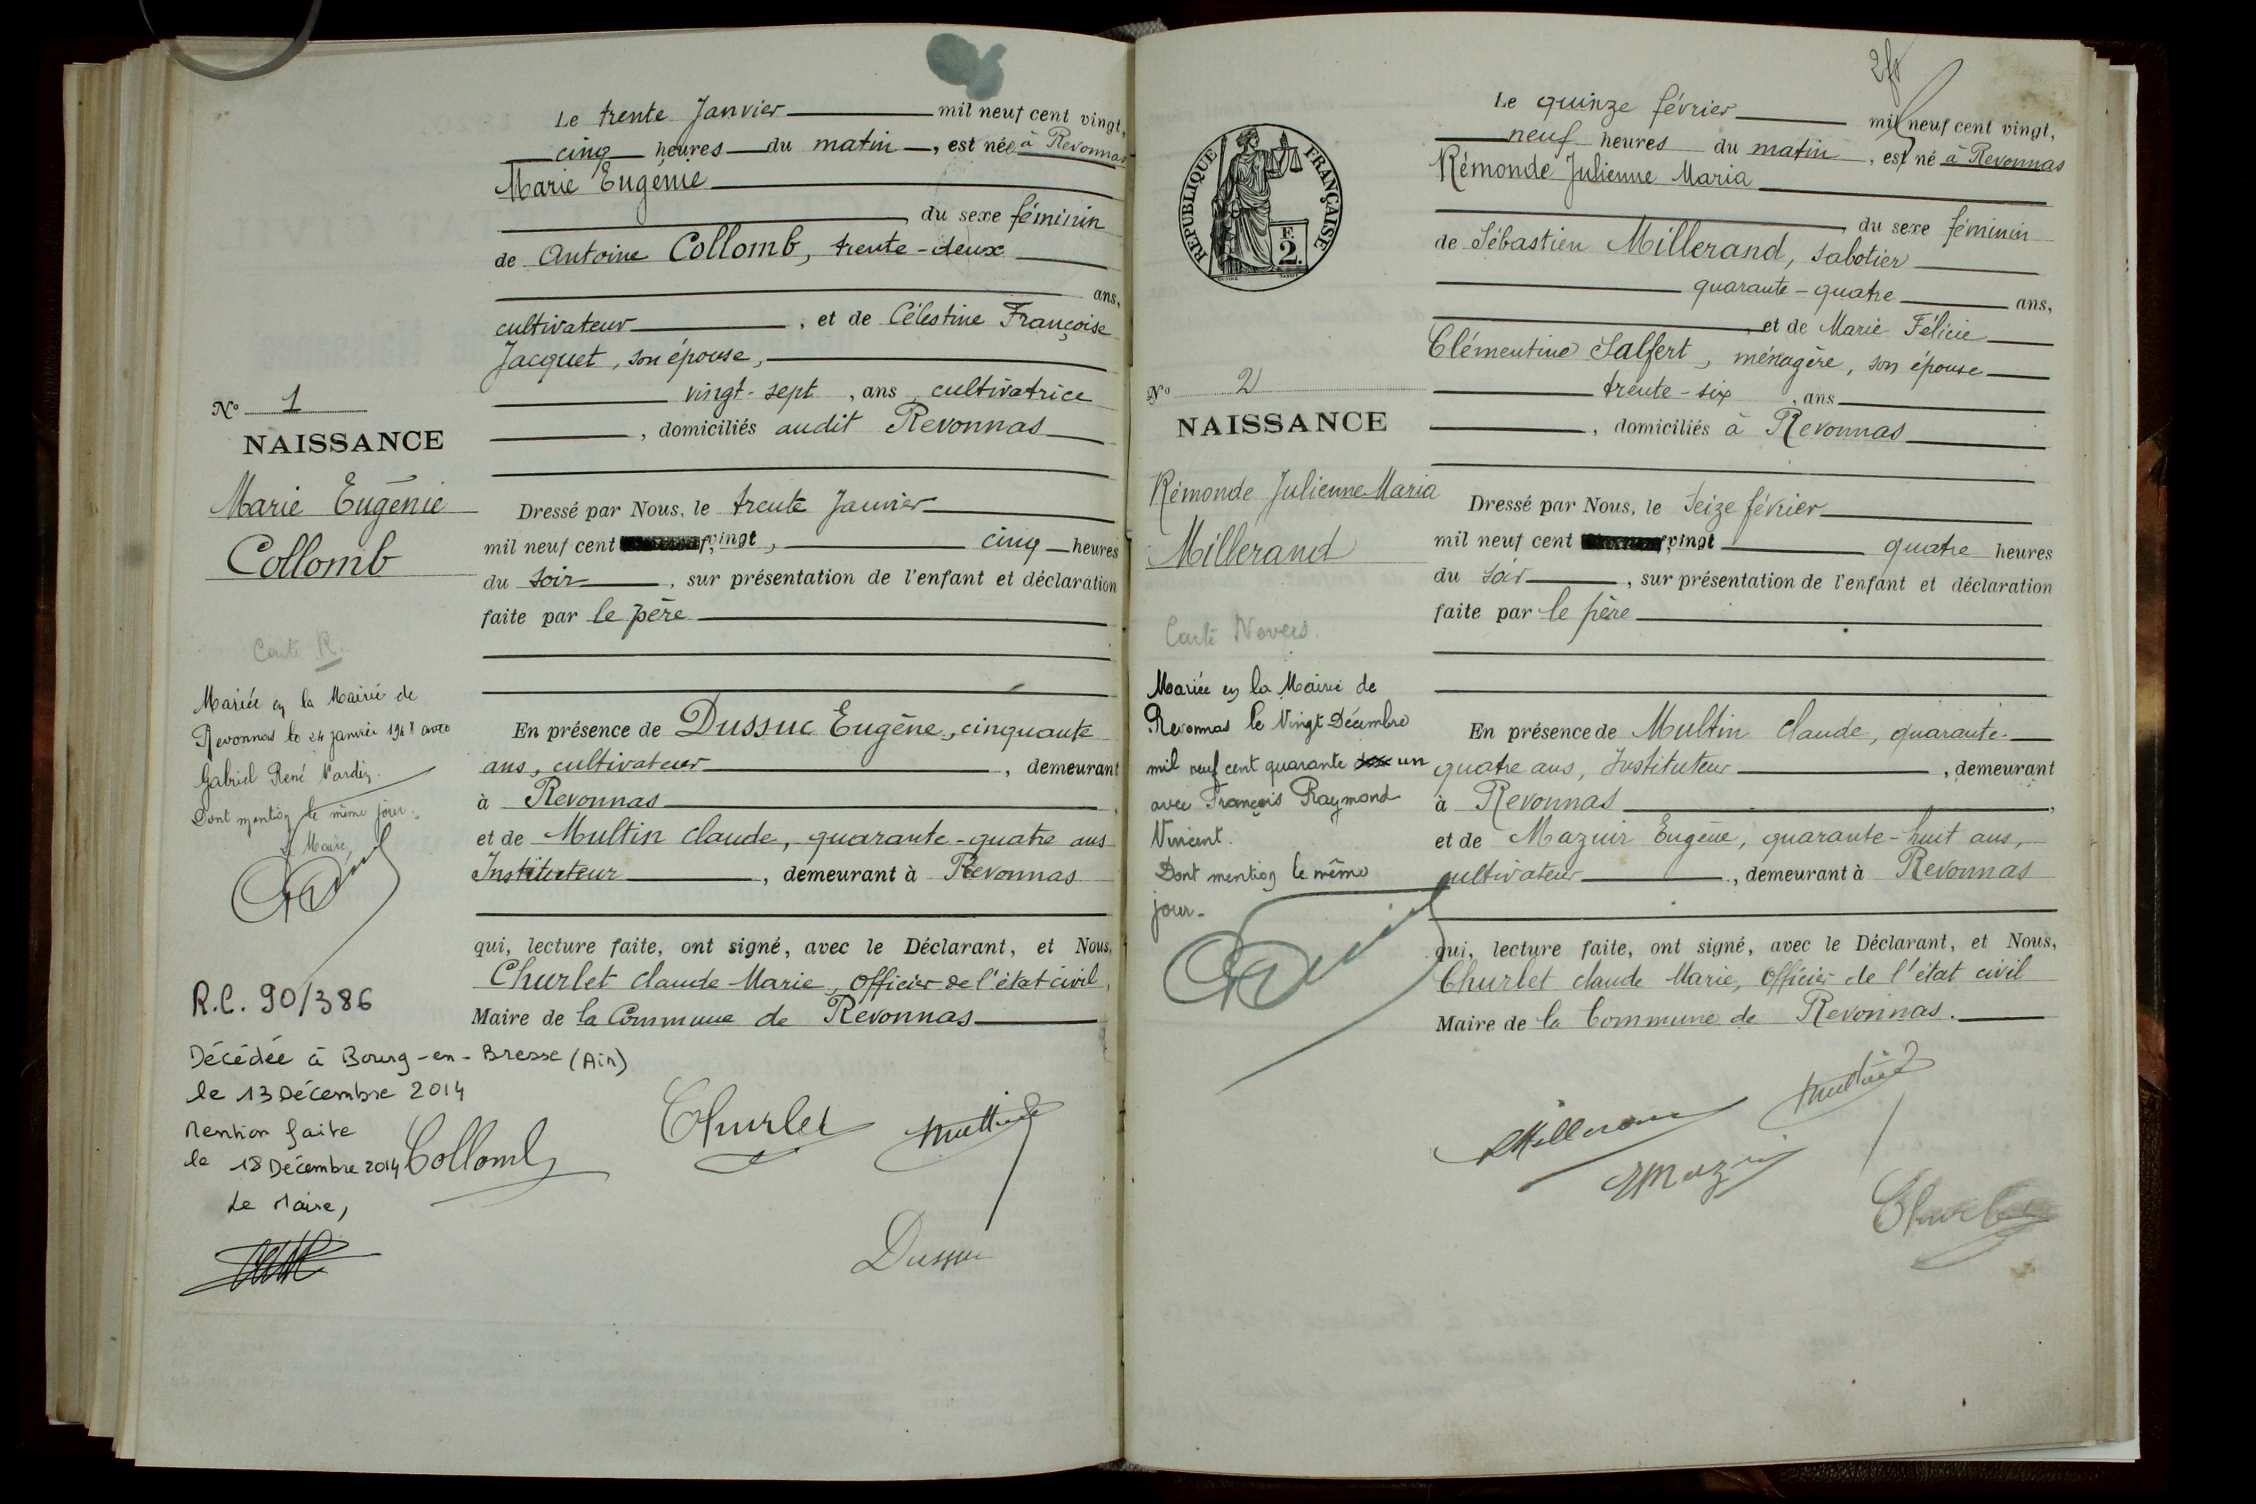 Le trente Janvier mil neuf cent vingt,
cinq heures du matin, est née à Revonnas
Marie Eugénie
du sexe féminin
de Antoine Collomb, trente-deux
ans,
cultivateur, et de Célestine Françoise
Jacquet, son épouse,
vingt-sept, ans cultivatrice
, domiciliés audit Revonnas
No 1
NAISSANCE
Marie Eugénie
Collomb
Dressé par Nous, le trente Janvier
mil neuf cent vingt, cinq heures
du soir, sur présentation de l'enfant et déclaration
faite par le père
Mariée en la Mairie de
Revonnas le 24 janvier 1948 avec
Gabriel René
Dont mention le même jour.
Le Maire,
En présence de Dussuc Eugène, cinquante
ans, cultivateur, demeurant
à Revonnas,
et de Multin Claude, quarante-quatre ans
Instituteur, demeurant à Revonnas
qui, lecture faite, ont signé, avec le Déclarant, et Nous,
Churlet Claude Marie, Officier de l'état civil,
Maire de la Commune de Revonnas
R.C. 90/386
Décédée à Bourg-en-Bresse (Ain)
le 13 Décembre 2014
Mention faite
le 18 Décembre 2014
Le Maire,
Collomb
Churlet
Multin
Dussuc
Le quinze février mil neuf cent vingt,
neuf heures du matin, est né à Revonnas
Rémonde Julienne Maria
du sexe féminin
de Sébastien Millerand, sabotier
quarante-quatre ans,
, et de Marie Félicie
Clémentine Salfert, ménagère, son épouse
trente-six, ans
, domiciliés à Revonnas
REPUBLIQUE FRANÇAISE
F.
2.
No 2
NAISSANCE
Rémonde Julienne Maria
Millerand
Dressé par Nous, le seize février
mil neuf cent vingt quatre heures
du soir, sur présentation de l'enfant et déclaration
faite par le père
Mariée en la Mairie de
Revonnas le Vingt Décembre
mil neuf cent quarante un
avec François Raymond
Vincent.
Dont mention le même
jour.
En présence de Multin Claude, quarante-
quatre ans, Instituteur, demeurant
à Revonnas,
et de Mazuir Eugène, quarante-huit ans,
cultivateur, demeurant à Revonnas
qui, lecture faite, ont signé, avec le Déclarant, et Nous,
Churlet Claude Marie, Officier de l'état civil
Maire de la Commune de Revonnas.
Millerand
Multin
E Mazuir
Churlet